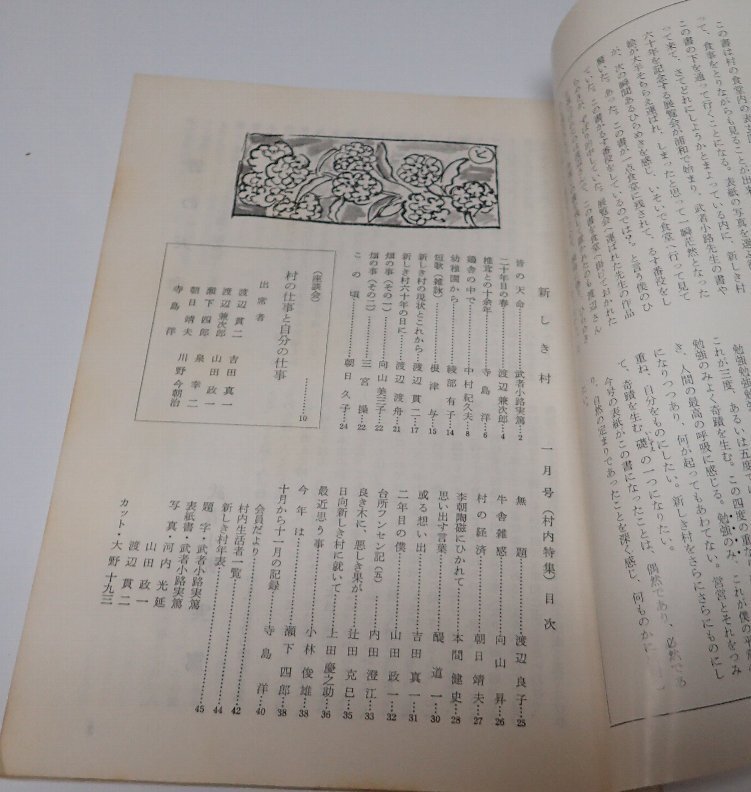 この書は村の食堂内の表
って、食事をとりながらも見ることが出
この書の下を通って行くことになる。表紙の写真を選ぶ
って来て、さてどれにしようかとまよっている内に、新しき村
六十年を記念する展覧会が浦和で始まり、武者小路先生の書や
絵が大半そちらえ運ばれ、しまったと思って一瞬茫然となった
が、次の瞬間あるひらめきを感じ、いそいで食堂へ行って見て
驚いた。あった。この書が一点食堂に残されて、るす番役をし
ていた。この書がるす番役をしているのでは？と言う僕のひ
勉強のみよく奇蹟を生む。
これが三度、あるいは五度で
勉強のみよく奇蹟を生む。この四度の
き、人間の最高の呼吸に感じる。勉強のみ
になりつつあり、何か起ってもあわてない。営営とそれをつみ
重ね、自分をものにしたい。新しき村をさらにさらにものにし
て、奇蹟を生む礎の一つになりたい。
今号の表紙がこの書になったことは、偶然であり、必然であ
り、自然の定まりであったことを深く感じ、何ものかに
新しき村　一月号（村内特集）目次
昔の天命……武者小路実篤…2
二十年目の春……渡辺兼次郎…4
椎茸との十余年……寺島洋…6
鶏舎の中で……中村紀久夫…8
幼稚園から……綾部有子…14
短歌（雑詠）……根津与…15
新しき村の現状とこれから……渡辺貫二…17
新しき村六十年の日に……渡辺渡舟…21
畑の事（その一）……向山美三子…22
畑の事（その二）……三宮操…22
この頃……朝日久子…24
（座談会）
村の仕事と自分の仕事……10
出席者
渡辺貫二　吉田真一
渡辺兼次郎　山田政一
瀬下四郎　泉幸二
朝日靖夫　川野今朝治
寺島洋
無題……渡辺良子…25
牛舎雑感……向山昇…26
村の経済……朝日靖夫…27
李朝陶磁にひかれて……本間健史…28
思い出す言葉……醍道一…30
或る想い出……吉田真一…31
二年目の僕……山田政一…32
台所フンセン記（五）……内田澄江…33
良き木に、悪しき果が……辻田克巳…35
日向新しき村に就いて……上田慶之助…36
最近思う事……小林俊雄…38
今年は……瀬下四郎…38
十月から十一月の記録……寺島洋…40
会員だより……42
村内生活者一覧……44
新しき村年表……45
題字・武者小路実篤
表紙書・武者小路実篤
写真・河内光延
山田政一
渡辺貫二
カット・大野十九三